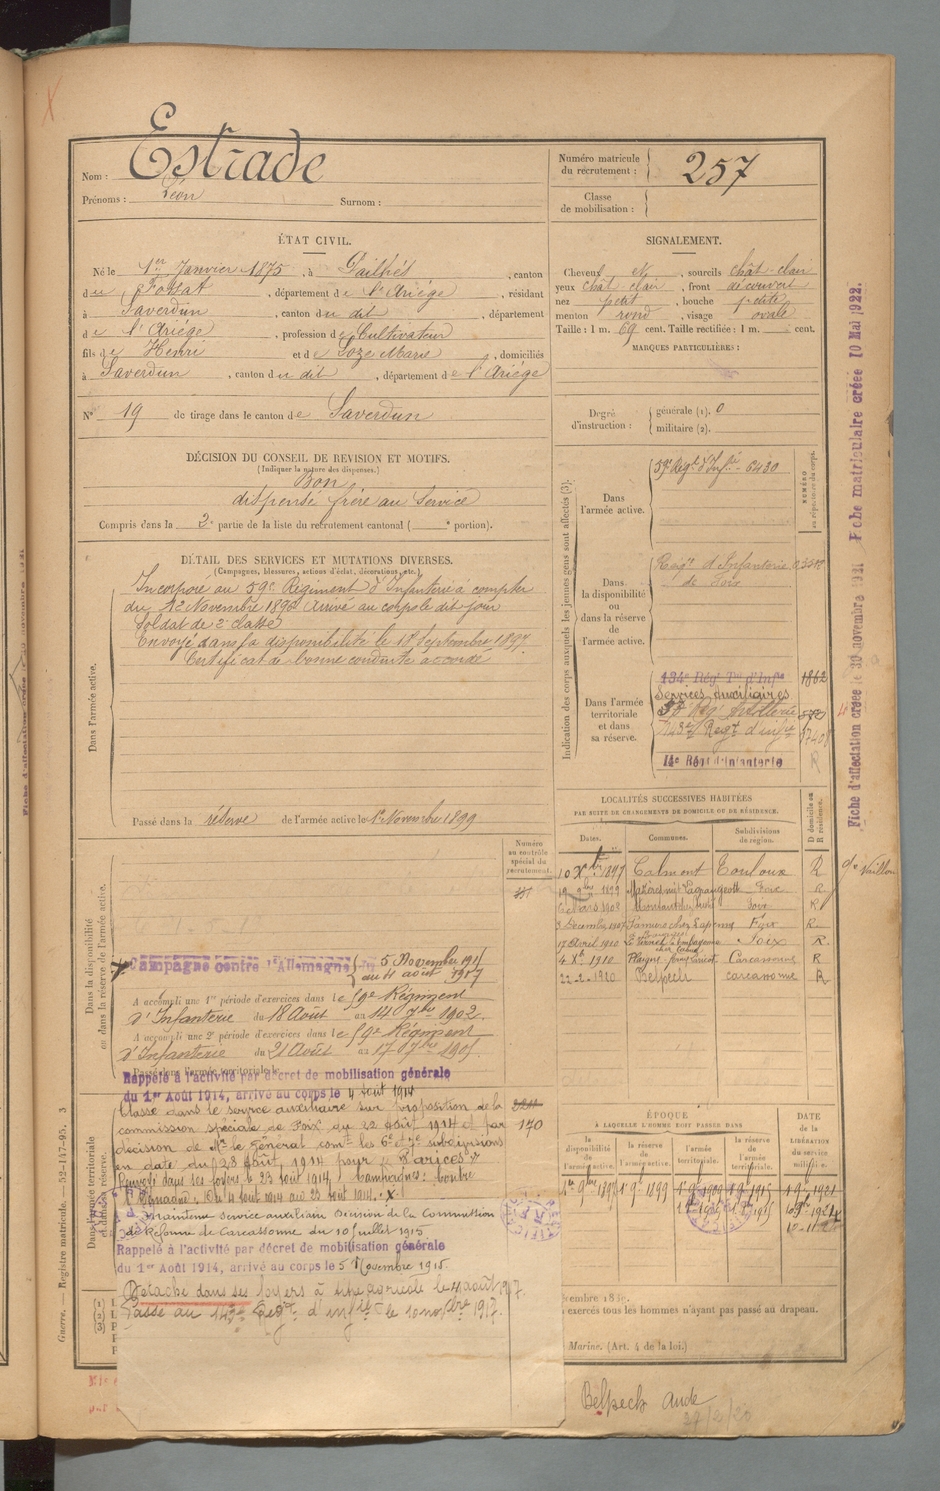 Nom : Estrade
Prénoms : Léon Surnom :
Numéro matricule du recrutement : 257
Classe de mobilisation :
ÉTAT CIVIL.
Né le 1er Janvier 1875, à Pailhés, canton
du Fossat, département de l'Ariége, résidant
à Saverdun, canton du dit, département
de l'Ariége, profession de Cultivateur
fils de Henri et de Loze Marie, domiciliés
à Saverdun, canton du dit, département de l'Ariége
N° 19 de tirage dans le canton de Saverdun
SIGNALEMENT.
Cheveux et, sourcils chât-clair
yeux chât clair, front découvert
nez petit, bouche petite
menton rond, visage ovale
Taille : 1 m. 69 cent. Taille rectifiée : 1 m. cent.
MARQUES PARTICULIÈRES :
Degré d'instruction : générale (1). 0
militaire (2).
DÉCISION DU CONSEIL DE REVISION ET MOTIFS.
(Indiquer la nature des dispenses.)
Bon
dispensé frère au Service
Compris dans la 2e partie de la liste du recrutement cantonal ( e portion).
DÉTAIL DES SERVICES ET MUTATIONS DIVERSES.
(Campagnes, blessures, actions d'éclat, décorations, etc.)
Dans l'armée active.
Incorporé au 59e Régiment d'Infanterie à compter
du Novembre 1896 Arrivé au corps le dit jour
Soldat de 2e classe
Envoyé dans la disponibilité le 18 Septembre 1897
Certificat de bonne conduite accordé
Passé dans la réserve de l'armée active le 1er Novembre 1899
Numéro au contrôle spécial du recrutement.
Dans la disponibilité ou dans la réserve de l'armée active.
Campagne contre l'Allemagne du 5 Novembre 1915
au 4 août 1917
A accompli une 1re période d'exercices dans le 59e Régiment
d'Infanterie du 18 Août au 14 7bre 1902.
A accompli une 2e période d'exercices dans le 59e Régiment
d'Infanterie du 21 Août au 17 7bre 1905
Dans l'armée territoriale et dans sa réserve.
Rappelé à l'activité par décret de mobilisation générale
du 1er Août 1914, arrivé au corps le 4 août 1914
Classé dans le service auxiliaire sur proposition de la
commission spéciale de Foix du 22 Août 1914 et par
décision de Mr le Général comt les 6e et 7e subdivisions
en date du 28 Août 1914 pour Varices
Renvoyé dans ses foyers le 23 août 1914. Campagnes : Contre
l'Allemagne. Du 4 août 1914 au 23 août 1914. X
170
Maintenu service auxiliaire Décision de la Commission
de Réforme de Carcassonne du 10 juillet 1915
Rappelé à l'activité par décret de mobilisation générale
du 1er Août 1914, arrivé au corps le 5 Novembre 1915.
Détaché dans ses foyers à titre agricole le 4 août 1917.
Passé au 143e Regt d'infie le 10 novbre 1917.
Indication des corps auxquels les jeunes gens sont affectés (3).
NUMÉRO au répertoire du corps.
Dans l'armée active.
59e Régt d'Infie - 6430
Dans la disponibilité ou dans la réserve de l'armée active.
Régt d'Infanterie
de Foix
Dans l'armée territoriale et dans sa réserve.
134e Régt Tal d'Infie 1862
Services Auxiliaires
143e Regt d'infie
14e Régt d'Infanterie
LOCALITÉS SUCCESSIVES HABITÉES
PAR SUITE DE CHANGEMENTS DE DOMICILE OU DE RÉSIDENCE.
Dates. Communes. Subdivisions de région. D domicile ou R résidence.
10 Xbre 1897 Calmont Toulouse R
19 9bre 1899 Foix R
6 Mars 1902 Foix R
3 Décembre 1907 Foix R.
17 Avril 1910 Foix R.
4 Xe 1910 Plaigne Carcassonne R
22-2-1920 Belpech carcassonne R
ÉPOQUE
À LAQUELLE L'HOMME DOIT PASSER DANS
la disponibilité de l'armée active. la réserve de l'armée active. l'armée territoriale. la réserve de l'armée territoriale.
DATE de la LIBÉRATION du service militaire.
1er 9bre 1899
Fiche d'affectation créée le 30 novembre 1921
Fiche matriculaire créée 10 Mai 1922.
Guerre. — Registre matricule. — 52-147-95.
exercés tous les hommes n'ayant pas passé au drapeau.
Marine. (Art. 4 de la loi.)
Belpech Aude
27/2/20